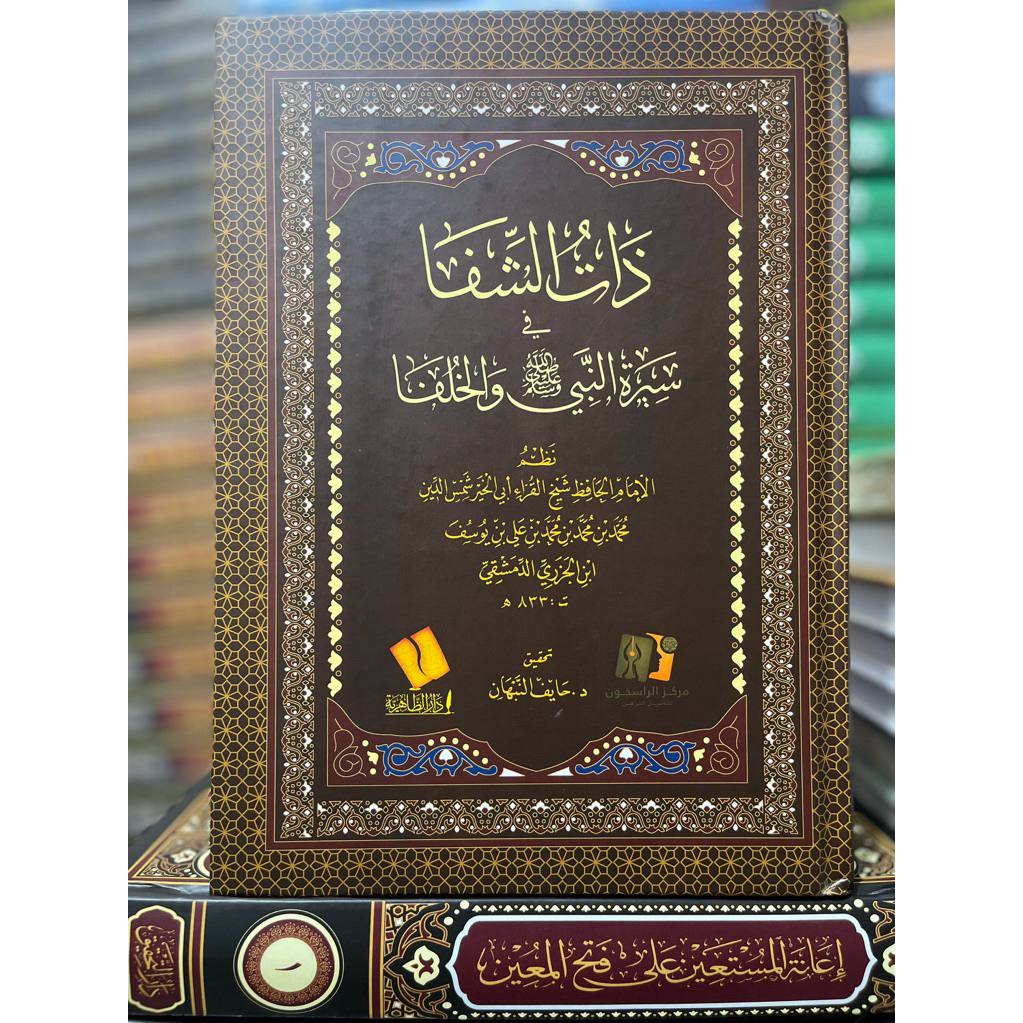 ذَاتُ الشِّفَا
في
سِيرَةِ النَّبِيِّ ﷺ وَالخُلَفَا
نَظْمُ
الإمَام الحَافِظِ شَيْخِ القُرَّاءِ أَبِي الخَيْرِ شَمْسِ الدِّينِ
مُحَمَّدِ بْنِ مُحَمَّدِ بْنِ مُحَمَّدِ بْنِ عَلِي بْنِ يُوسُفَ
ابْنِ الجَزَرِيِّ الدِّمَشْقِيِّ
ت: ٨٣٣ هـ
تحقيق
د. حايف النبهان
مركز الراسخون
دار الظاهرية
إعانة المستعين على فتح المعين
١